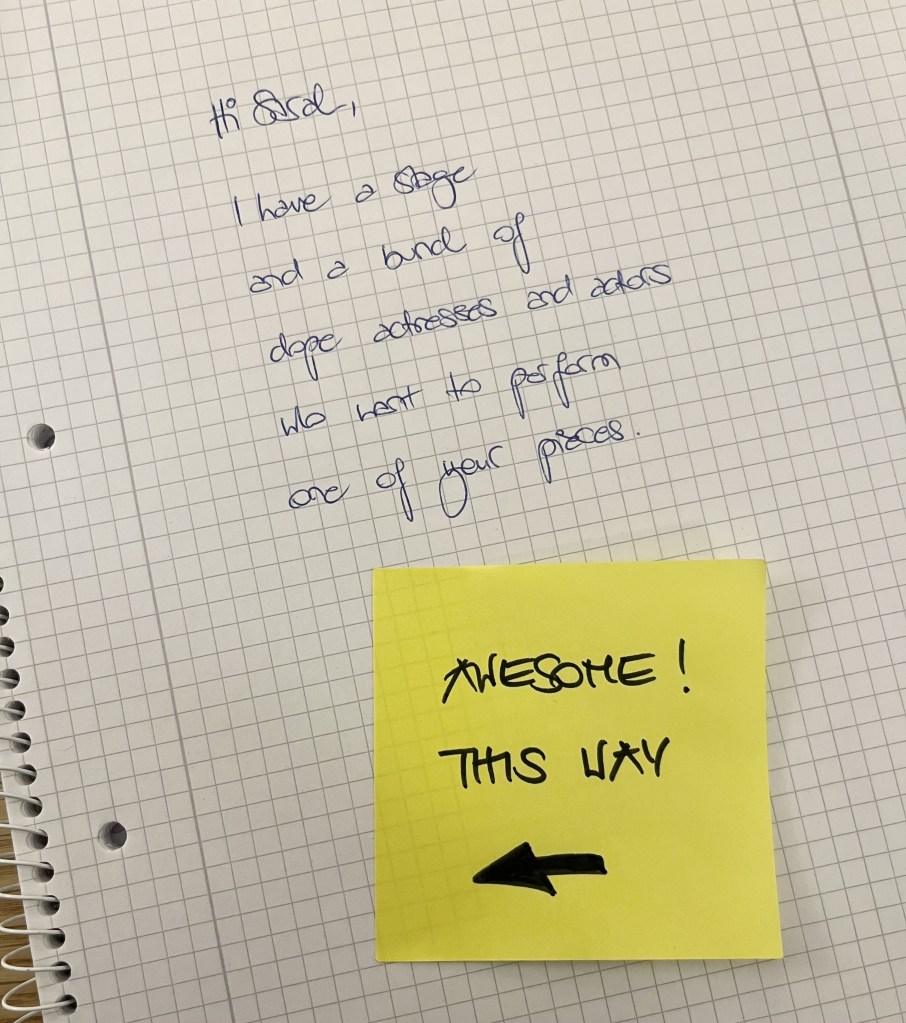 Hi
I have a stage
and a bunch of
dope actresses and actors
who want to perform
one of your pieces.
AWESOME!
THIS WAY